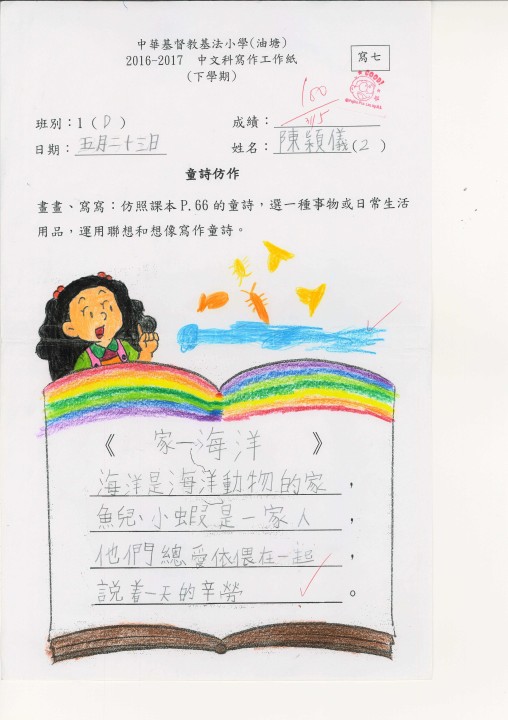 中華基督教基法小學(油塘)
2016-2017 中文科寫作工作紙
(下學期)
寫七
GOOD!
班別：1 ( D )
成績： 100
日期： 五月二十三日
姓名： 陳穎儀(2 )
童詩仿作
畫畫、寫寫：仿照課本 P.66 的童詩，選一種事物或日常生活
用品，運用聯想和想像寫作童詩。
《 家—海洋 》
海洋是海洋動物的家 ，
魚兒、小蝦是一家人 ，
他們總愛依偎在一起 ，
説着一天的辛勞 。